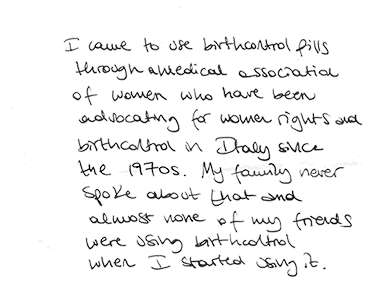 I came to use birthcontrol pills
through a medical association
of women who have been
advocating for women rights and
birthcontrol in Italy since
the 1970s. My family never
spoke about that and
almost none of my friends
were using birthcontrol
when I started using it.